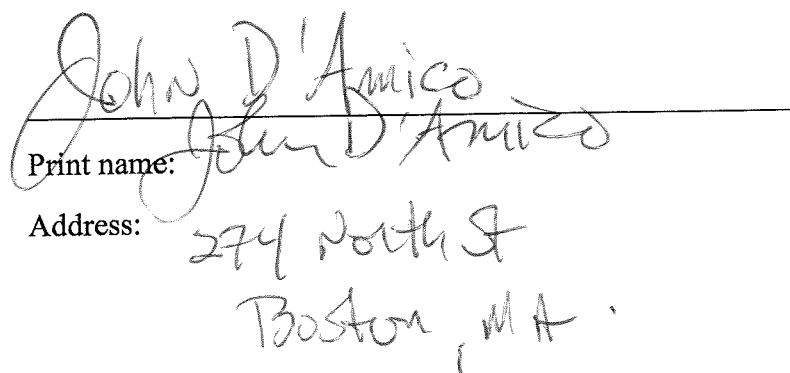 John D'Amico
Print name: John D'Amico
Address: 274 North St
Boston, MA.